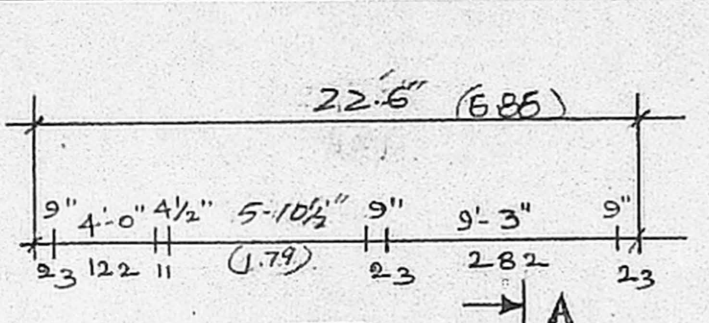 22'-6" (685)
9" 4'-0" 4½" 5-10½" 9" 9'-3" 9"
23 122 11 (1.79) 23 282 23
A